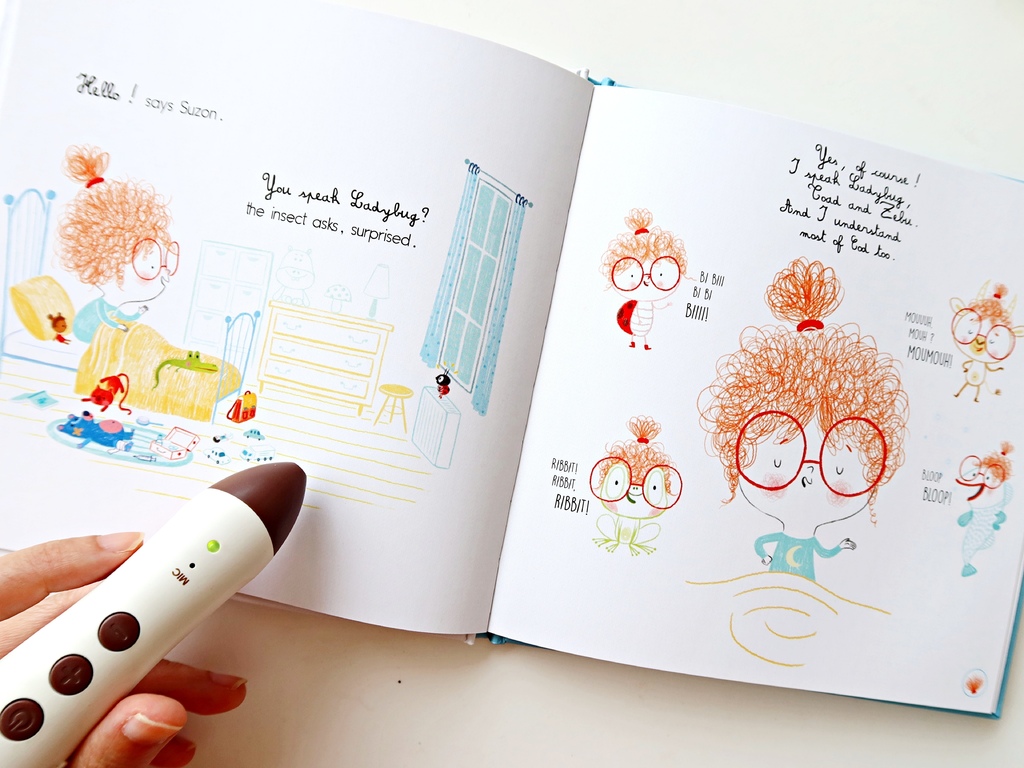 Hello ! says Suzon.
You speak Ladybug?
the insect asks, surprised.
Yes, of course !
I speak Ladybug,
Toad and Zebu.
And I understand
most of Cod too.
BI BIII
BI BI
BIIII!
MOUUUH,
MOUH ?
MOUMOUH!
RIBBIT!
RIBBIT,
RIBBIT!
BLOOP
BLOOP!
MIC